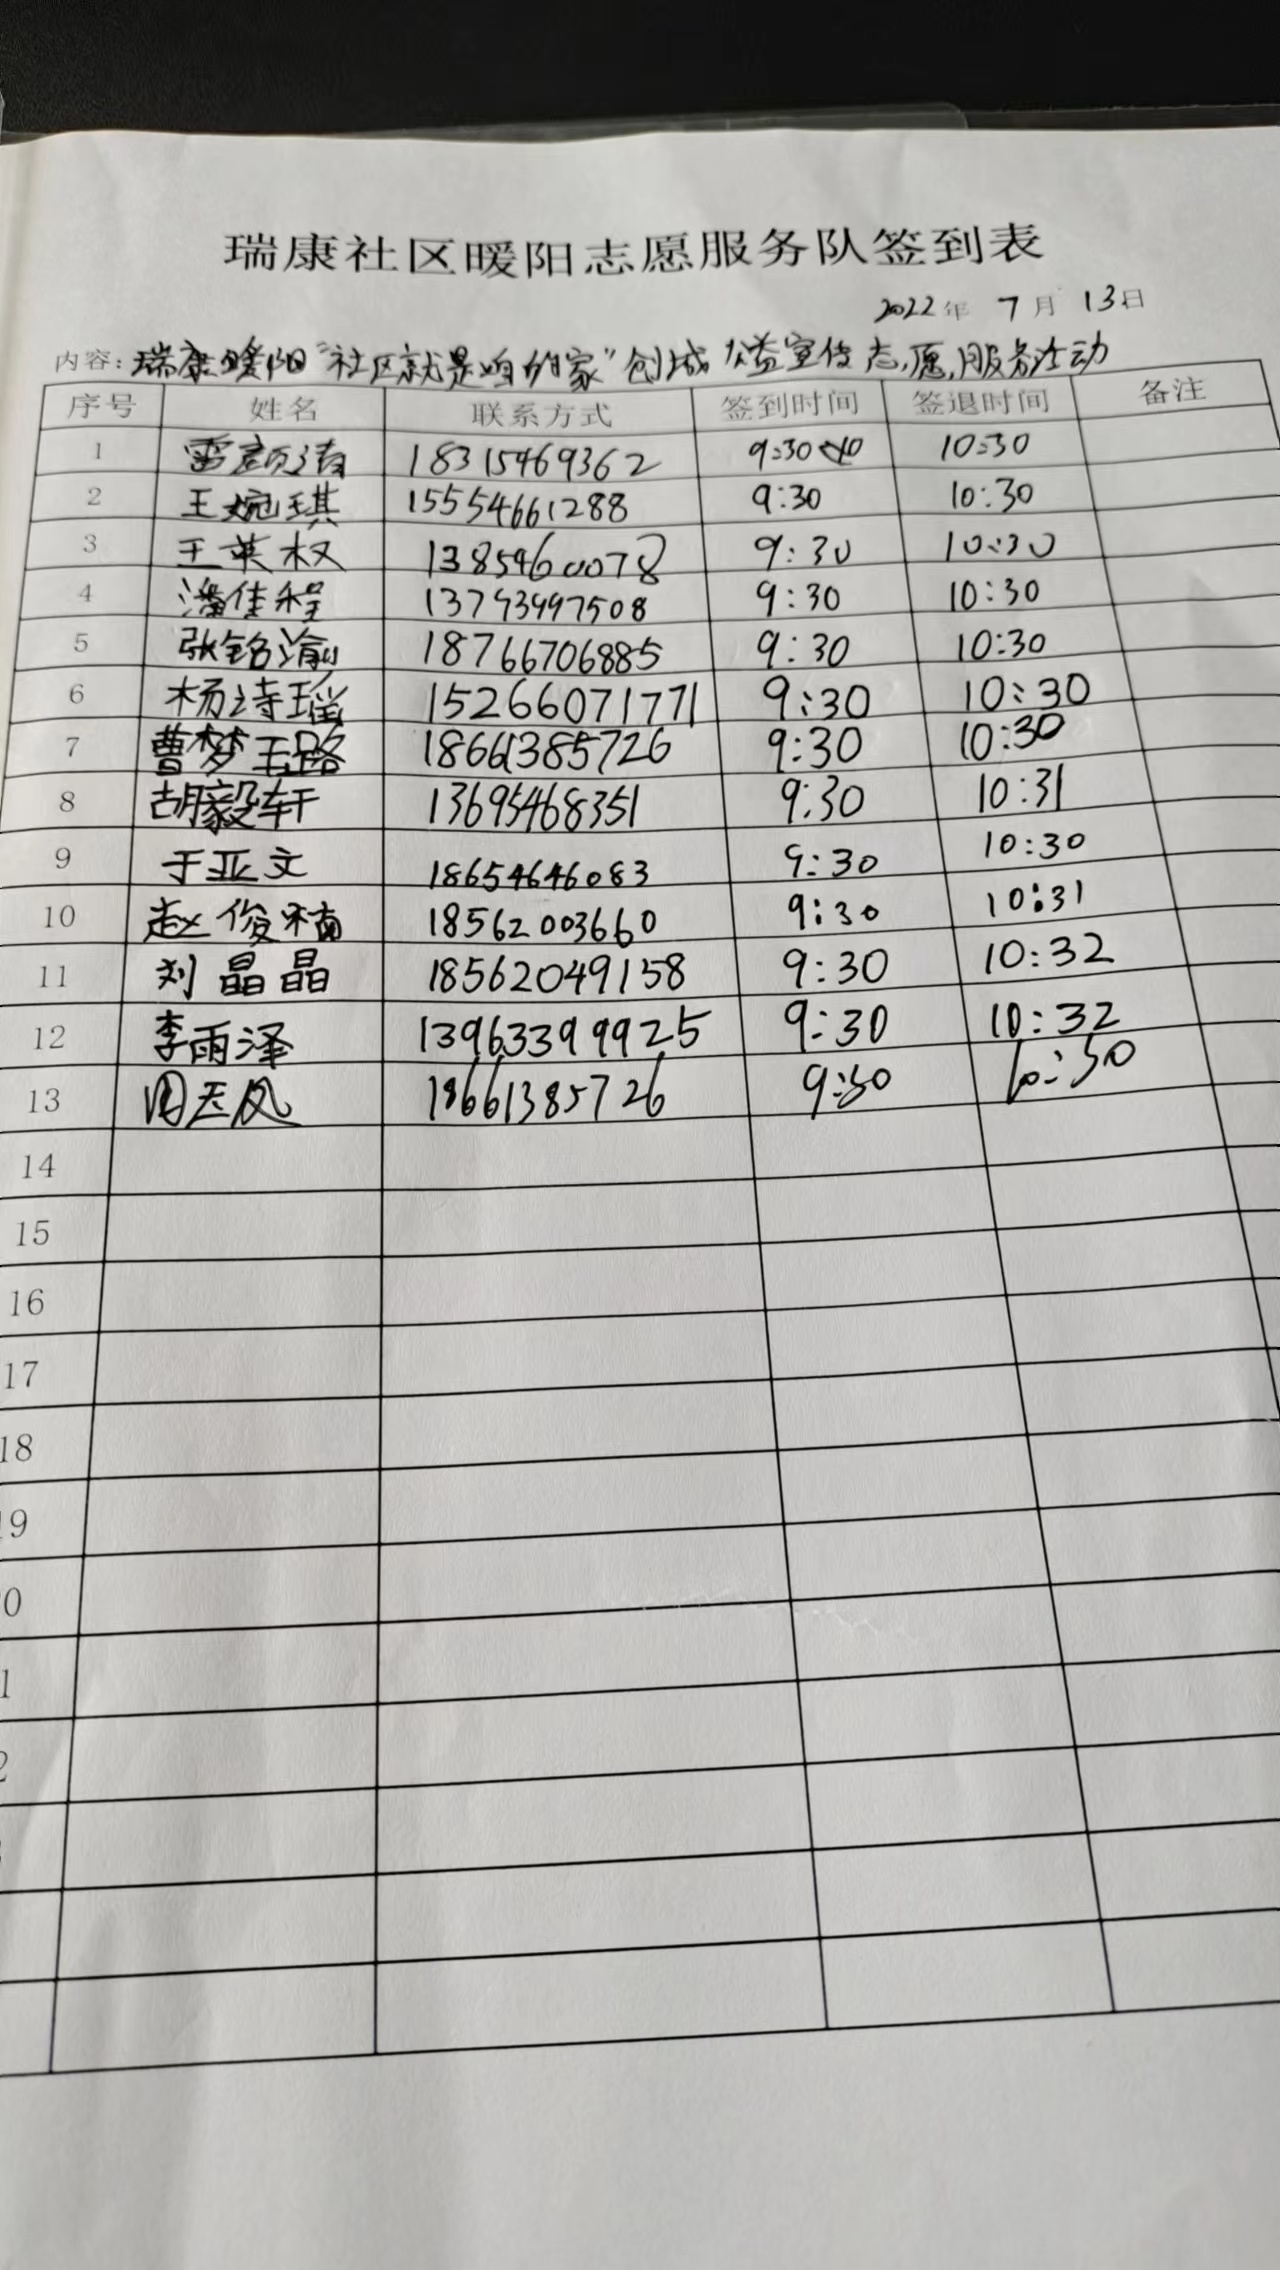 瑞康社区暖阳志愿服务队签到表
2022年 7月 13日
内容：瑞康暖阳“社区就是咱的家”创城公益宣传志愿服务活动
序号 姓名 联系方式 签到时间 签退时间 备注
1 雷颜清 18315469362 9:30 10:30
2 王婉琪 15554661288 9:30 10:30
3 王英权 13854600078 9:30 10:30
4 潘佳程 13793497508 9:30 10:30
5 张铭渝 18766706885 9:30 10:30
6 杨诗瑶 15266071771 9:30 10:30
7 曹梦璐 18661385726 9:30 10:30
8 胡毅轩 13695468351 9:30 10:31
9 于亚文 18654646083 9:30 10:30
10 赵俊楠 18562003660 9:30 10:31
11 刘晶晶 18562049158 9:30 10:32
12 李雨泽 13963399925 9:30 10:32
13 周玉凤 18661385726 9:30 10:30
14
15
16
17
18
19
0
1
2